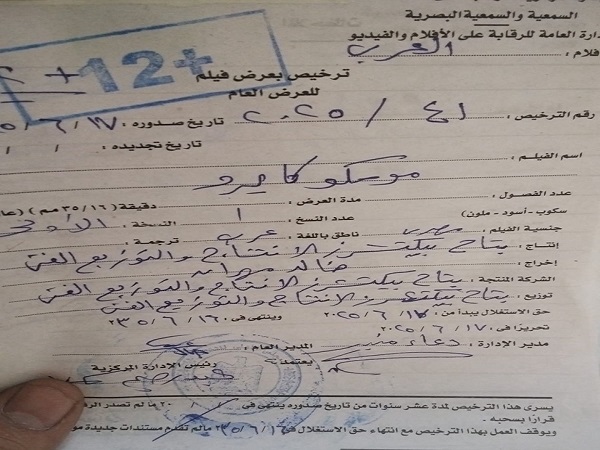 السمعية والسمعية البصرية
دارة العامة للرقابة على الأفلام والفيديو
فلام : العرب
12+
ترخيص بعرض فيلم
للعرض العام
رقم الترخيص : ٤١ / ٢٠٢٥ تاريخ صدوره : ١٧ / ٦ /
تاريخ تجديده : / /
اسم الفيلم : موسكو كايرو
عدد الفصول : مدة العرض : دقيقة (٣٥/١٦ مم)
سكوب - أسود - ملون) عدد النسخ : ١ النسخة : الأولى
جنسية الفيلم : مصرى ناطق باللغة : عربى ترجمة :
إنتاج : بيكتشرز للانتاج والتوزيع الفنى
إخراج : خالد مهران
الشركة المنتجة : بيكتشرز للانتاج والتوزيع الفنى
توزيع : بيكتشرز للانتاج والتوزيع الفنى
حق الاستغلال يبدأ من : ١٧ / ٦ / ٢٠٢٥ وينتهى فى ١٦ / ٦ / ٢٠٣٥
تحريرًا فى : ١٧ / ٦ / ٢٠٢٥
مدير الإدارة : دعاء منير المدير العام :
يعتمد، رئيس الإدارة المركزية
يسرى هذا الترخيص لمدة عشر سنوات من تاريخ صدوره ينتهى فى / / ٢٠ مالم تصدر الرقا
قرارًا بسحبه .
ويوقف العمل بهذا الترخيص مع انتهاء حق الاستغلال فى ١٦ / ٦ / ٢٠٣٥ مالم تقدم مستندات جديدة